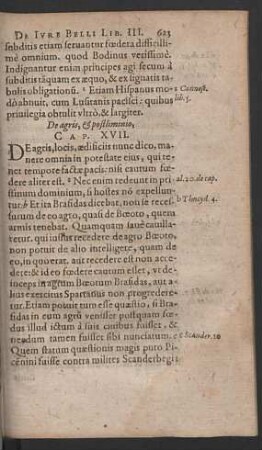 DE IVRE BELLI LIB. III. 623
subditis etiam seruantur fœdera difficilli-
mè omnium. quod Bodinus verissimè.
Indignantur enim principes agi secum à
subditis tâquam ex æquo, & ex signatis ta-
bulis obligationũ. Etiam Hispanus mo-
dò abnuit, cum Lusitanis pacisci: quibus
priuilegia obtulit vltrò, & largiter.
De agris, & postliminio,
CAP. XVII.
DE agris, locis, ædificiis nunc dico, ma-
nere omnia in potestate eius, qui te-
net tempore factæ pacis: nisi cautum fœ-
dere aliter est. Nec enim redeunt in pri-
stimum dominium, si hostes nõ expellun-
tur. b Et ita Brasidas dicebat, non se reces-
surum de eo agro, quasi de Bœoto, quem
armis tenebat. Quamquam sauè cauilla-
retur, qui iussus recedere de agro Bœoto,
non potuit de alio intelligere, quàm de
eo, in quo erat. aut recedere est non acce-
dere: & ideo fœdere cautum esset, vt de-
inceps in agrum Bœotum Brasidas, aut a-
lius exercitus Spartanus non progredere-
tur. Etiam potuit tum esse quæstio, si Bra-
sidas in eum agrũ venisset postquam fœ-
dus illud ictum à suis ciuibus fuisset, &
nondum tamen fuisset sibi nuntiatum.
Quem statum quæstionis magis puto Pi-
cenini fuisse contra milites Scanderbegi:
lib. 5.
al. 20. de cap.
b Thucyd. 4.
c Scander. 10